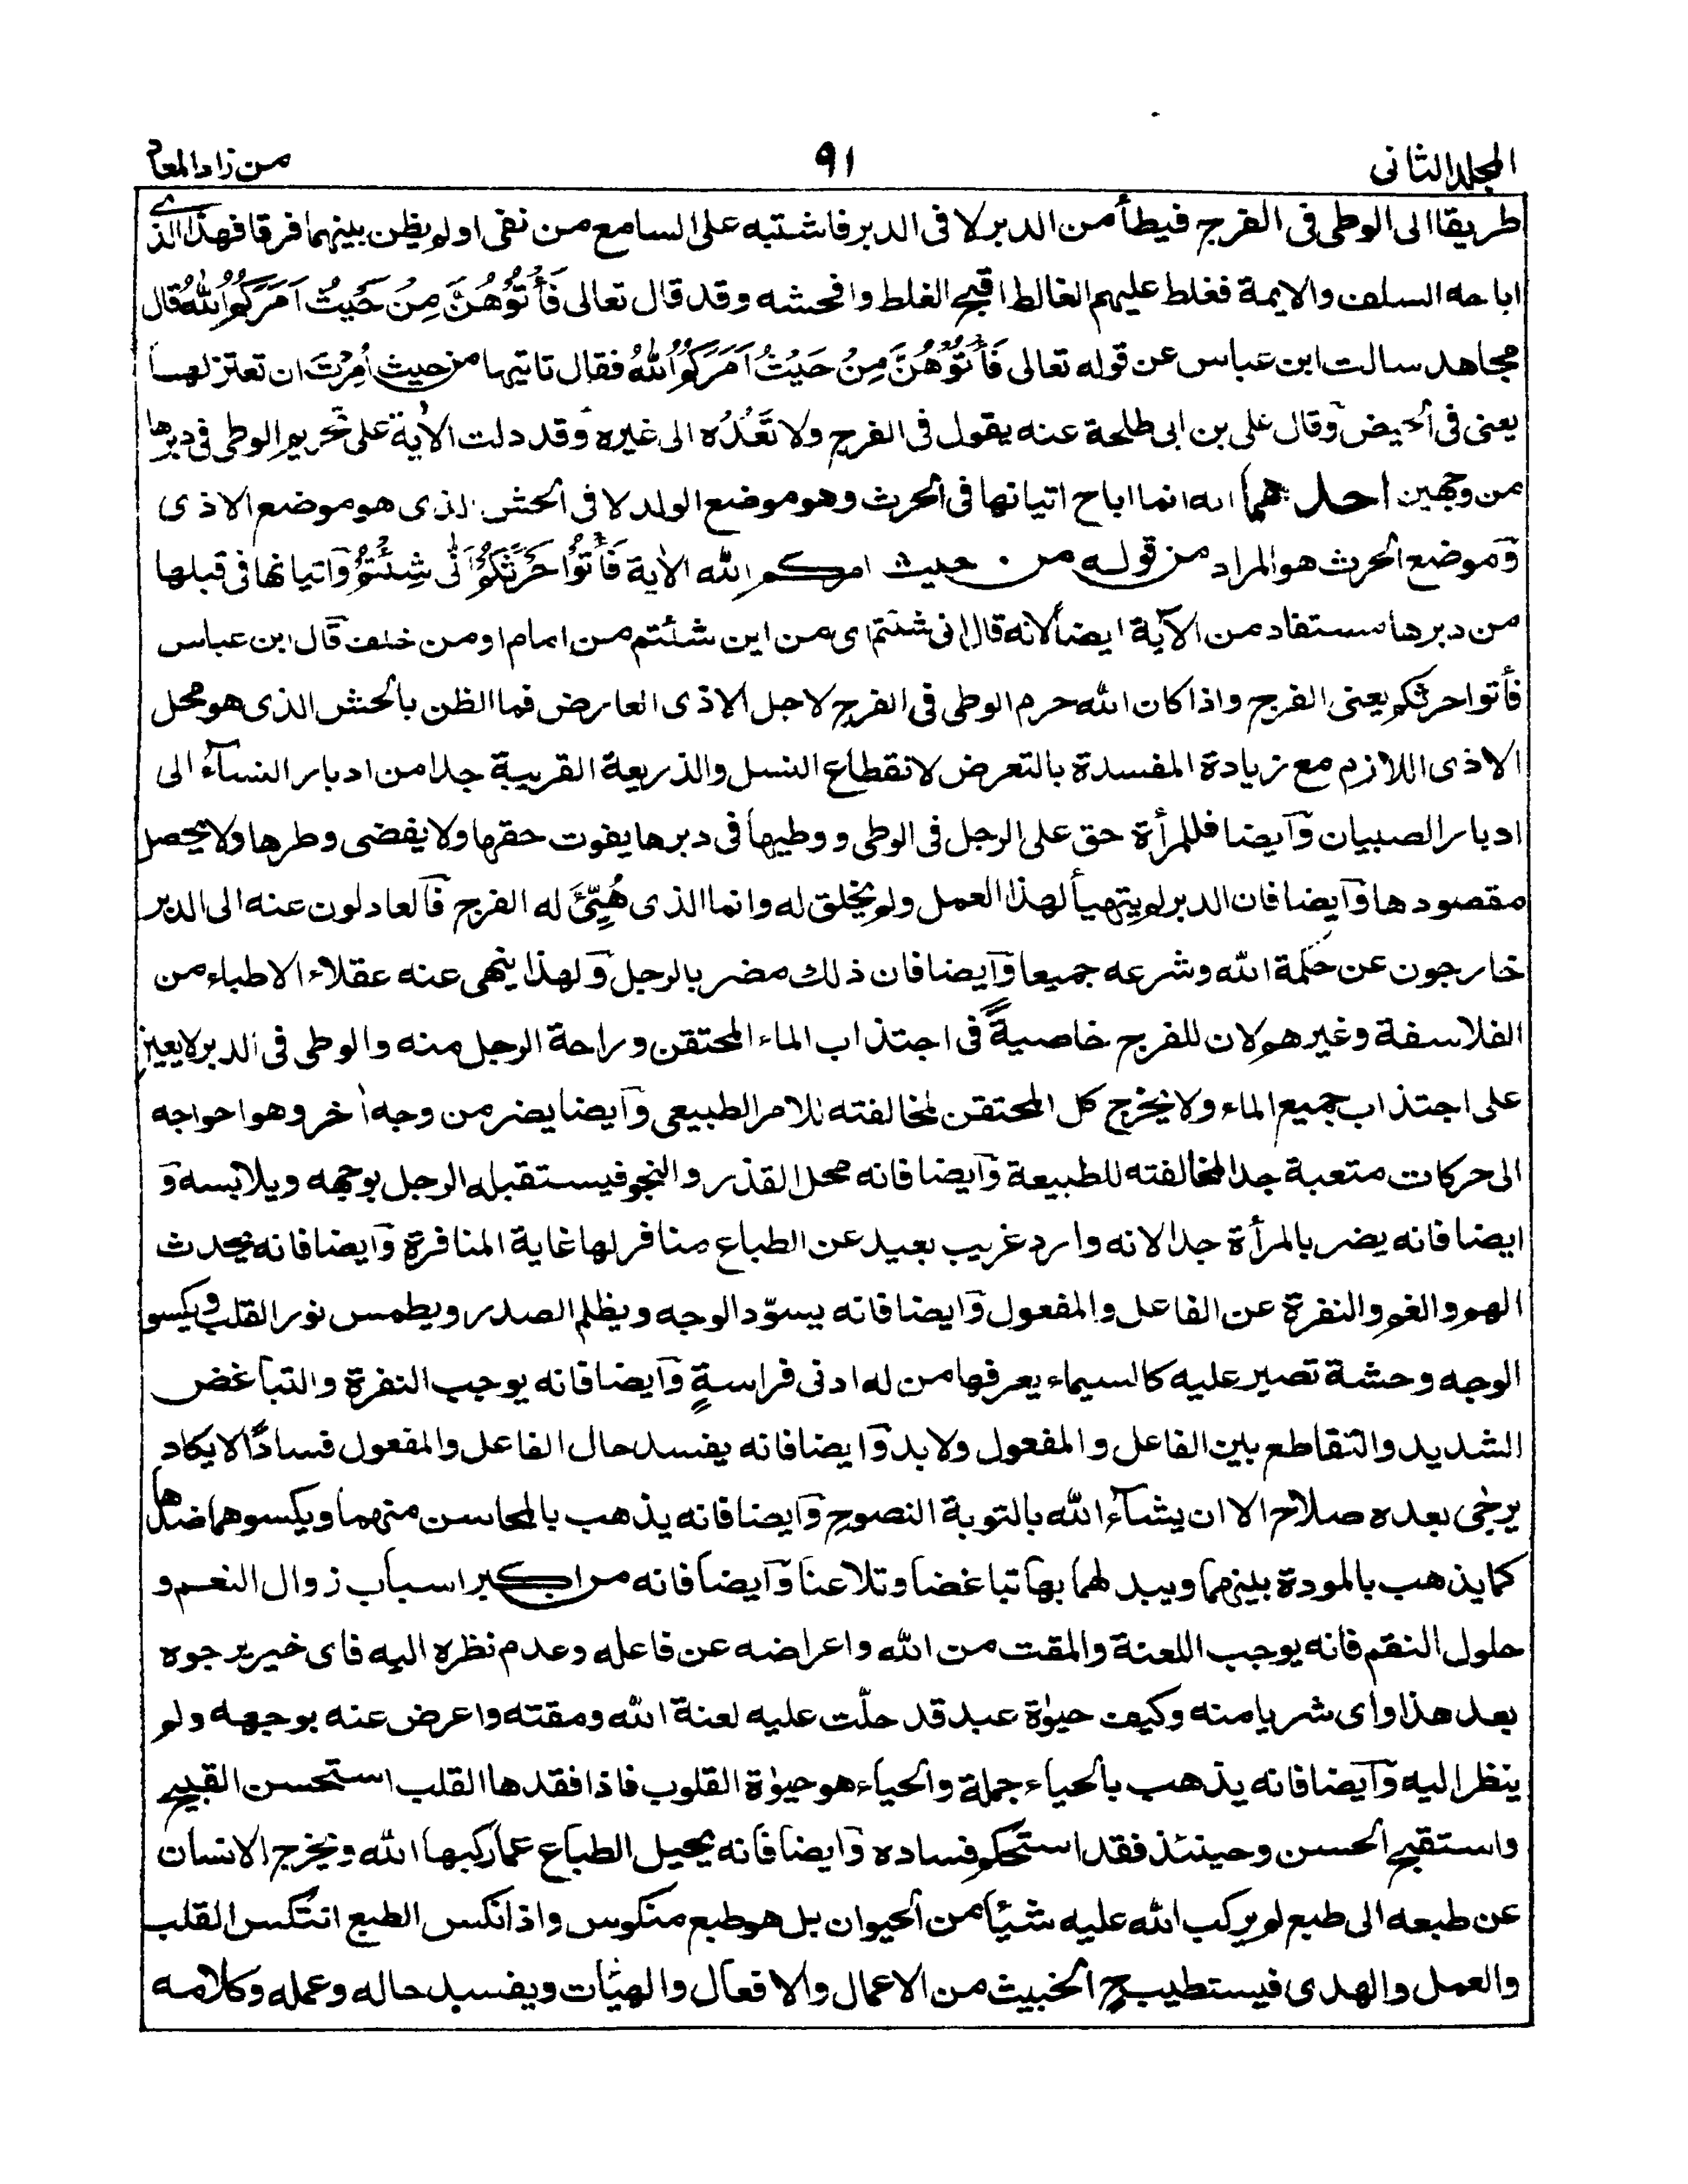 المجلد الثانى ٩١ من زاد المعاد
طريقا الى الوطى فى الفرج فيطأ من الدبر لا فى الدبر فاشتبه على السامع من نفى او لم يظن بينهما فرقا فهذا الذى
اباحه السلف والايمة فغلط عليهم الغالط اقبح الغلط وافحشه وقد قال تعالى فَأْتُوْهُنَّ مِنْ حَيْثُ اَمَرَكُمُ اللّٰهُ قال
مجاهد سالت ابن عباس عن قوله تعالى فَأْتُوْهُنَّ مِنْ حَيْثُ اَمَرَكُمُ اللّٰهُ فقال تاتيها من حيث اُمِرْتَ ان تعتزلها
يعنى فى الحيض وقال على بن ابى طلحة عنه يقول فى الفرج ولا تَعْدُه الى غيره وقد دلت الاٰية على تحريم الوطى فى دبرها
من وجهين احدهما انه انما اباح اتيانها فى الحرث وهو موضع الولد لا فى الحش الذى هو موضع الاذى
وموضع الحرث هو المراد من قوله من حيث امركم الله الاٰية فَأْتُوْا حَرْثَكُمْ اَنّٰى شِئْتُمْ واتيانها فى قبلها
من دبرها مستفاد من الآية ايضا لانه قال انى شئتم اى من اين شئتم من امام او من خلف قال ابن عباس
فأتوا حرثكم يعنى الفرج واذا كان الله حرم الوطى فى الفرج لاجل الاذى العارض فما الظن بالحش الذى هو محل
الاذى اللازم مع زيادة المفسدة بالتعرض لانقطاع النسل والذريعة القريبة جدا من ادبار النسآء الى
ادبار الصبيان وآيضا فللمرأة حق على الرجل فى الوطى ووطيها فى دبرها يفوت حقها ولا يفضى وطرها ولا يحصل
مقصودها وآيضا فان الدبر لم يتهيأ لهذا العمل ولم يخلق له وانما الذى هُيِّئَ له الفرج فالعادلون عنه الى الدبر
خارجون عن حكمة الله وشرعه جميعا وآيضا فان ذلك مضر بالرجل ولهذا ينهى عنه عقلاء الاطباء من
الفلاسفة وغيرهم لان للفرج خاصيةً فى اجتذاب الماء المحتقن وراحة الرجل منه والوطى فى الدبر لا يعين
على اجتذاب جميع الماء ولا يخرج كل المحتقن لمخالفته للامر الطبيعى وآيضا يضر من وجه اٰخر وهو احواجه
الى حركات متعبة جدا لمخالفته للطبيعة وآيضا فانه محل القذر والنجو فيستقبله الرجل بوجهه ويلابسه و
ايضا فانه يضر بالمرأة جدا لانه وارد غريب بعيد عن الطباع منافر لها غاية المنافرة وآيضا فانه يحدث
الهم والغم والنفرة عن الفاعل والمفعول وآيضا فانه يسوّد الوجه ويظلم الصدر ويطمس نور القلب ويكسو
الوجه وحشة تصير عليه كالسيماء يعرفها من له ادنى فراسةٍ وآيضا فانه يوجب النفرة والتباغض
الشديد والتقاطع بين الفاعل والمفعول ولا بد وآيضا فانه يفسد حال الفاعل والمفعول فسادًا لا يكاد
يرجى بعده صلاح الا ان يشآء الله بالتوبة النصوح وآيضا فانه يذهب بالمحاسن منهما ويكسوهما ضدها
كما يذهب بالمودة بينهما ويبدلهما بها تباغضا وتلاعنا وآيضا فانه من اكبر اسباب زوال النعم و
حلول النقم فانه يوجب اللعنة والمقت من الله واعراضه عن فاعله وعدم نظره اليه فاى خير يرجوه
بعد هذا واى شر يامنه وكيف حيٰوة عبد قد حلّت عليه لعنة الله ومقته واعرض عنه بوجهه ولم
ينظر اليه وآيضا فانه يذهب بالحياء جملة والحياء هو حيٰوة القلوب فاذا فقدها القلب استحسن القبيح
واستقبح الحسن وحينئذ فقد استحكم فساده وآيضا فانه يحيل الطباع عما ركبها الله ويخرج الانسان
عن طبعه الى طبع لم يركب الله عليه شيئا من الحيوان بل هو طبع منكوس واذا نكس الطبع انتكس القلب
والعمل والهدى فيستطيب ح الخبيث من الاعمال والافعال والهيئات ويفسد حاله وعمله وكلامه